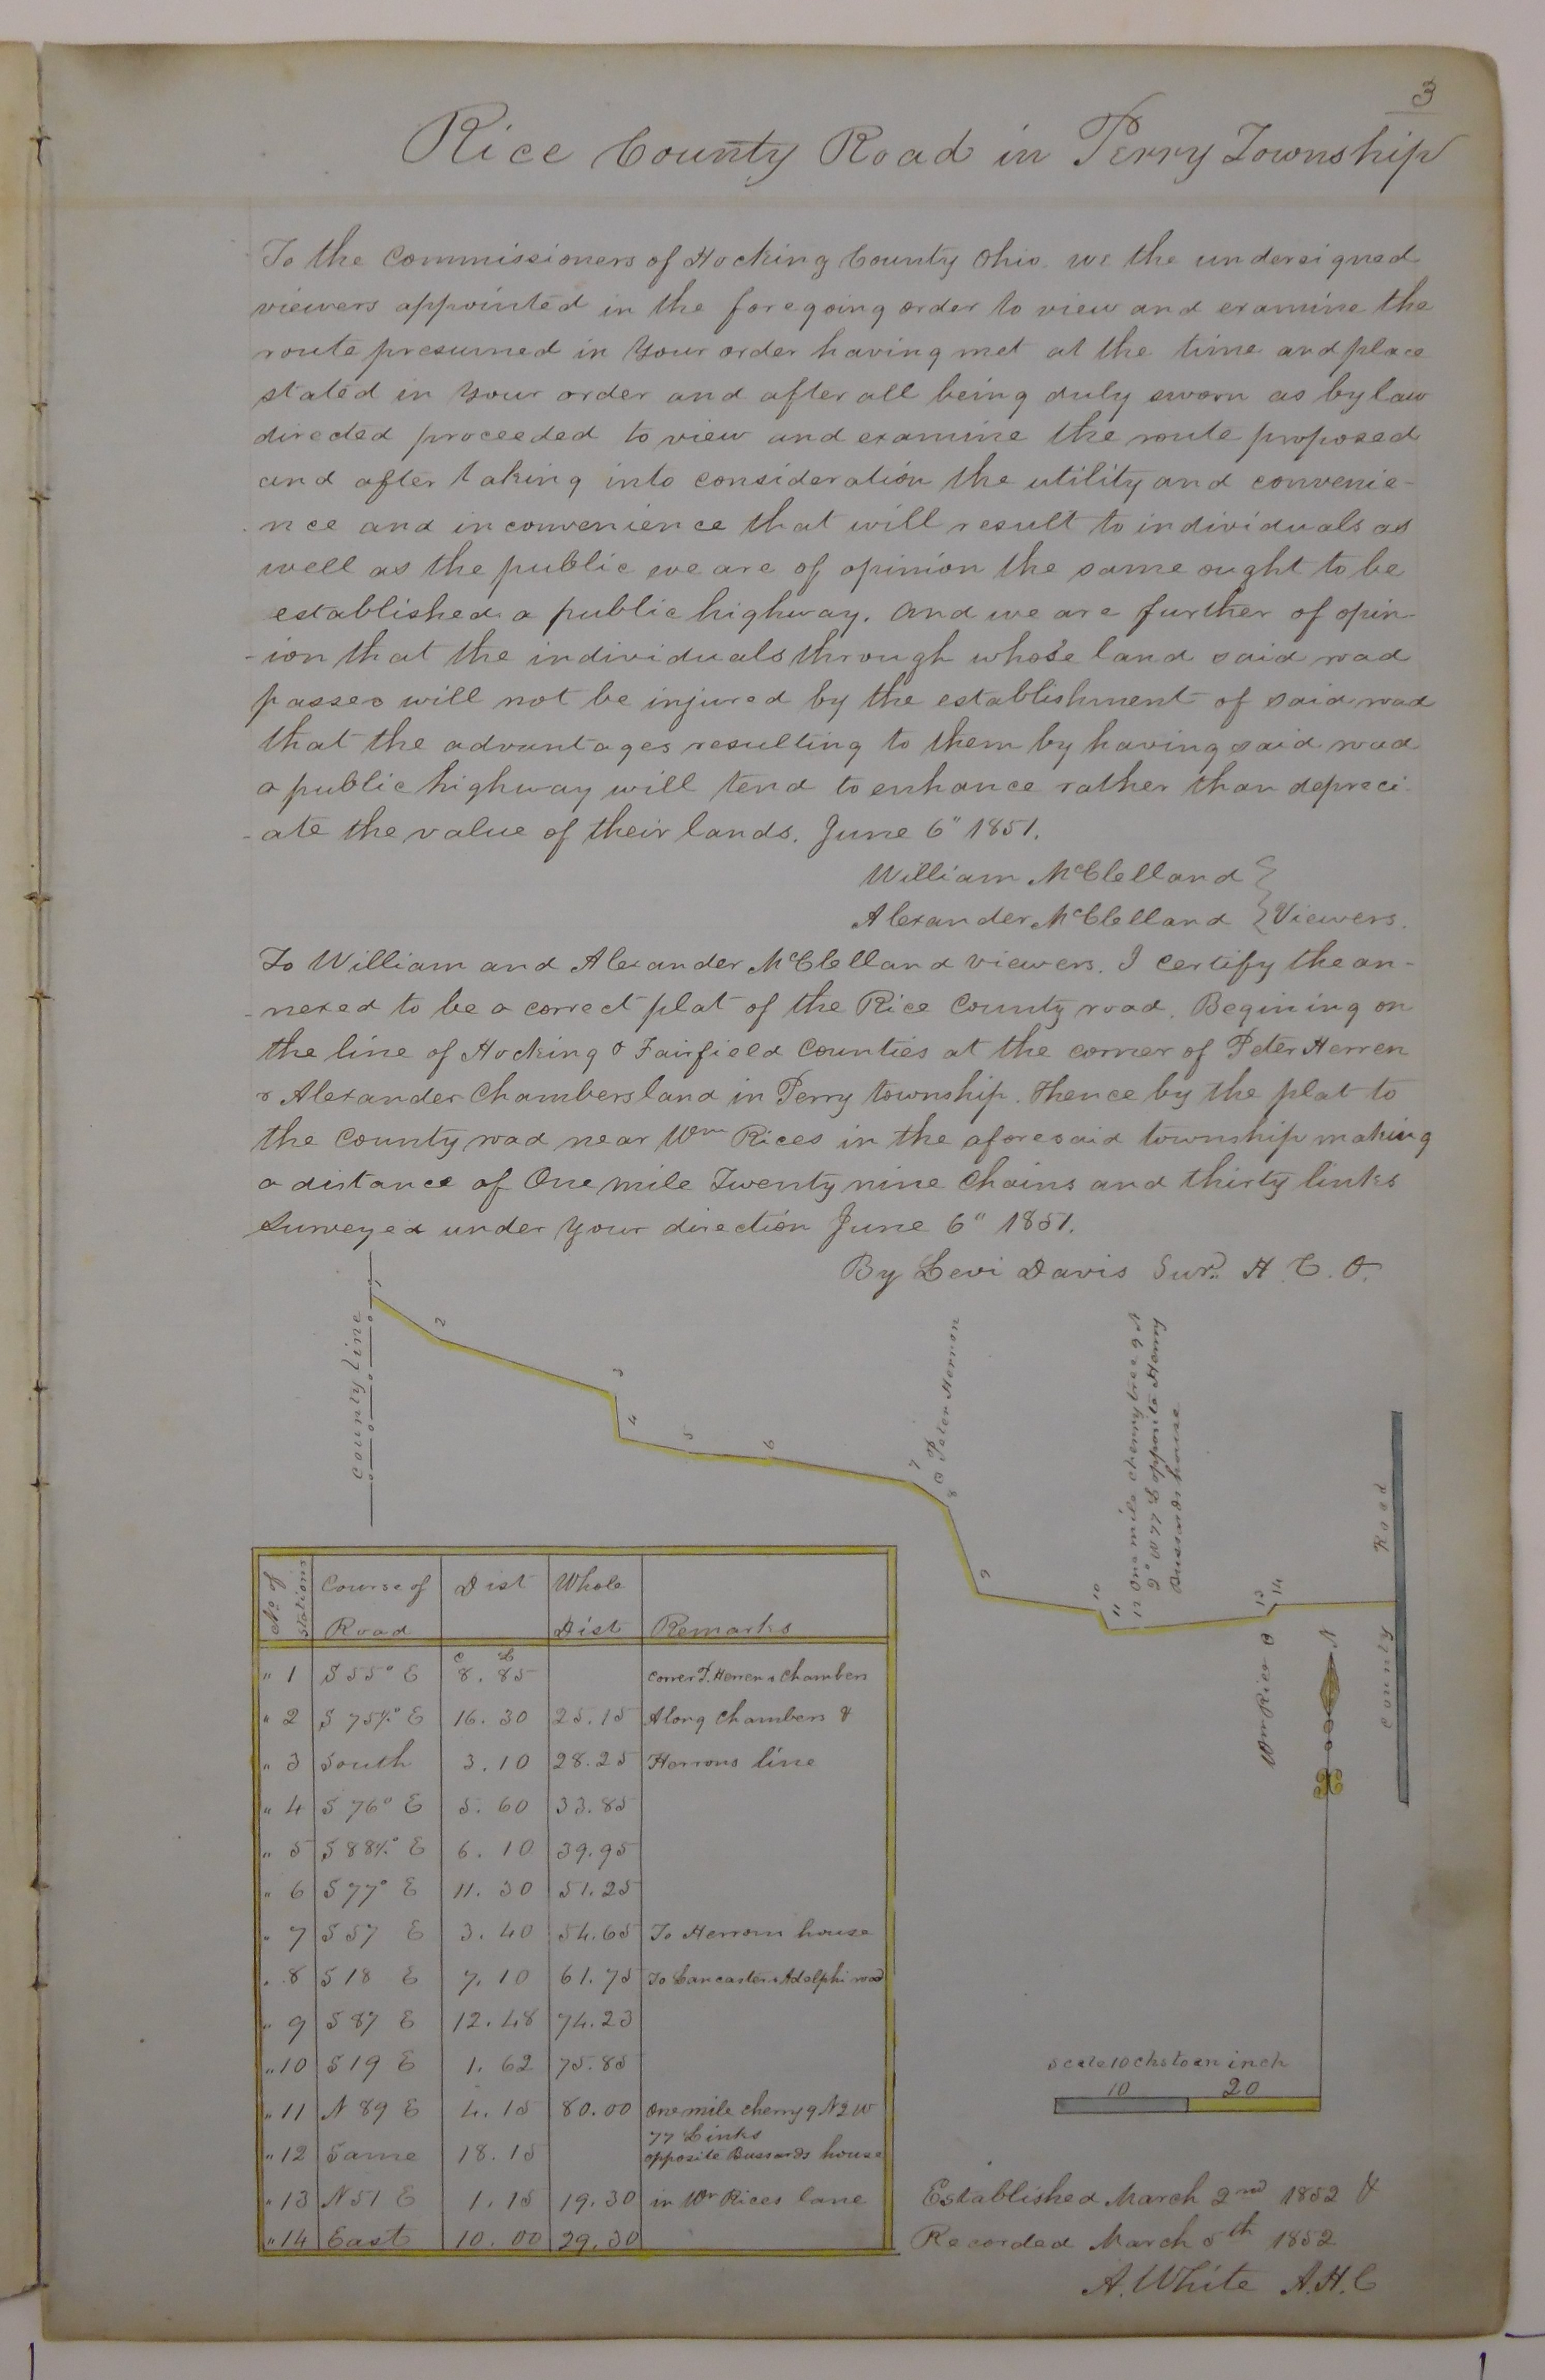 3
Rice County Road in Perry Township
To the Commissioners of Hocking County Ohio. we the undersigned
viewers appointed in the foregoing order to view and examine the
route presumed in Your order having met at the time and place
stated in Your order and after all being duly sworn as by law
directed proceeded to view and examine the route proposed
and after taking into consideration the utility and convenie-
-nce and inconvenience that will result to individuals as
well as the public we are of opinion the same ought to be
established a public highway. And we are further of opin-
-ion that the individuals through whose land said road
passes will not be injured by the establishment of said road
that the advantages resulting to them by having said road
a public highway will tend to enhance rather than depreci-
-ate the value of their lands. June 6" 1851.
William McClelland
Alexander McClelland } Viewers.
To William and Alexander McClelland viewers. I Certify the an-
-nexed to be a correct plat of the Rice County road. Begining on
the line of Hocking & Fairfield Counties at the corner of Peter Herren
& Alexander Chambers land in Perry township. Thence by the plat to
the County road near Wm Rices in the aforesaid township making
a distance of One mile Twenty nine Chains and thirty links
Surveyed under Your direction June 6" 1851.
By Levi Davis Surr. H. C. O.
County Line
1
2
3
4
5
6
7
8 Peter Herron
9
10
11
12 One mile cherry tree 9 N
2° W 77 L opposite Henry
Bussards house
13
14
Wm Rice
N
County Road
No. of Stations | Course of Road | Dist | Whole Dist | Remarks
C L
" 1 | S 55° E | 8. 85 | | Corner P. Herren & Chambers
" 2 | S 75½° E | 16. 30 | 25.15 | Along Chambers &
" 3 | South | 3. 10 | 28.25 | Herrons line
" 4 | S 76° E | 5. 60 | 33.85
" 5 | S 88½° E | 6. 10 | 39.95
" 6 | S 77° E | 11. 30 | 51.25
" 7 | S 57 E | 3. 40 | 54.65 | To Herrons house
" 8 | S 18 E | 7. 10 | 61.75 | To Lancaster & Adelphi road
" 9 | S 87 E | 12. 48 | 74.23
" 10 | S 19 E | 1. 62 | 75.85
" 11 | N 89 E | 4. 15 | 80.00 | One mile cherry 9 N 2 W
77 Links
" 12 | Same | 18. 15 | | opposite Bussards house
" 13 | N 51 E | 1. 15 | 19.30 | in Wm Rices lane
" 14 | East | 10. 00 | 29.30
Scale 10 chs to an inch
10 20
Established March 2nd 1852 &
Recorded March 5th 1852
A. White A.H.C